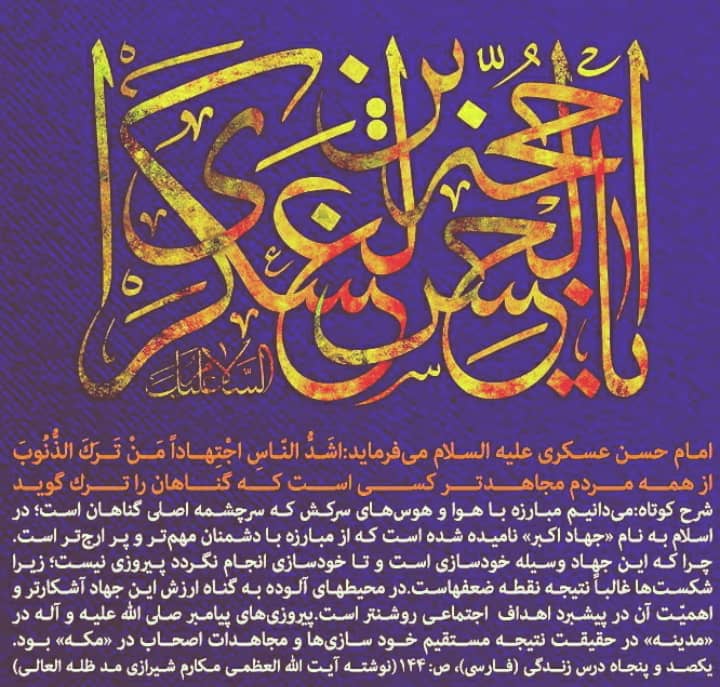 یا ابا محمد یا حسن بن علی
السلام علیک
امام حسن عسکری علیه السلام می‌فرماید:اشَدُّ النّاسِ اجْتِهاداً مَنْ تَرَكَ الذُّنُوبَ
از همه مردم مجاهدتر کسی است که گناهان را ترك گوید
شرح کوتاه:می‌دانیم مبارزه با هوا و هوس‌های سرکش که سرچشمه اصلی گناهان است؛ در
اسلام به نام «جهاد اکبر» نامیده شده است که از مبارزه با دشمنان مهم‌تر و پر ارج‌تر است.
چرا که این جهاد وسیله خودسازی است و تا خودسازی انجام نگردد پیروزی نیست؛ زیرا
شکست‌ها غالباً نتیجه نقطه ضعفهاست.در محیطهای آلوده به گناه ارزش این جهاد آشکارتر و
اهمیّت آن در پیشبرد اهداف اجتماعی روشنتر است.پیروزی‌های پیامبر صلی الله علیه و آله در
«مدینه» در حقیقت نتیجه مستقیم خود سازی‌ها و مجاهدات اصحاب در «مکه» بود.
یکصد و پنجاه درس زندگی (فارسی)، ص: ۱۴۴(نوشته آیت الله العظمی مکارم شیرازی مد ظله العالی)